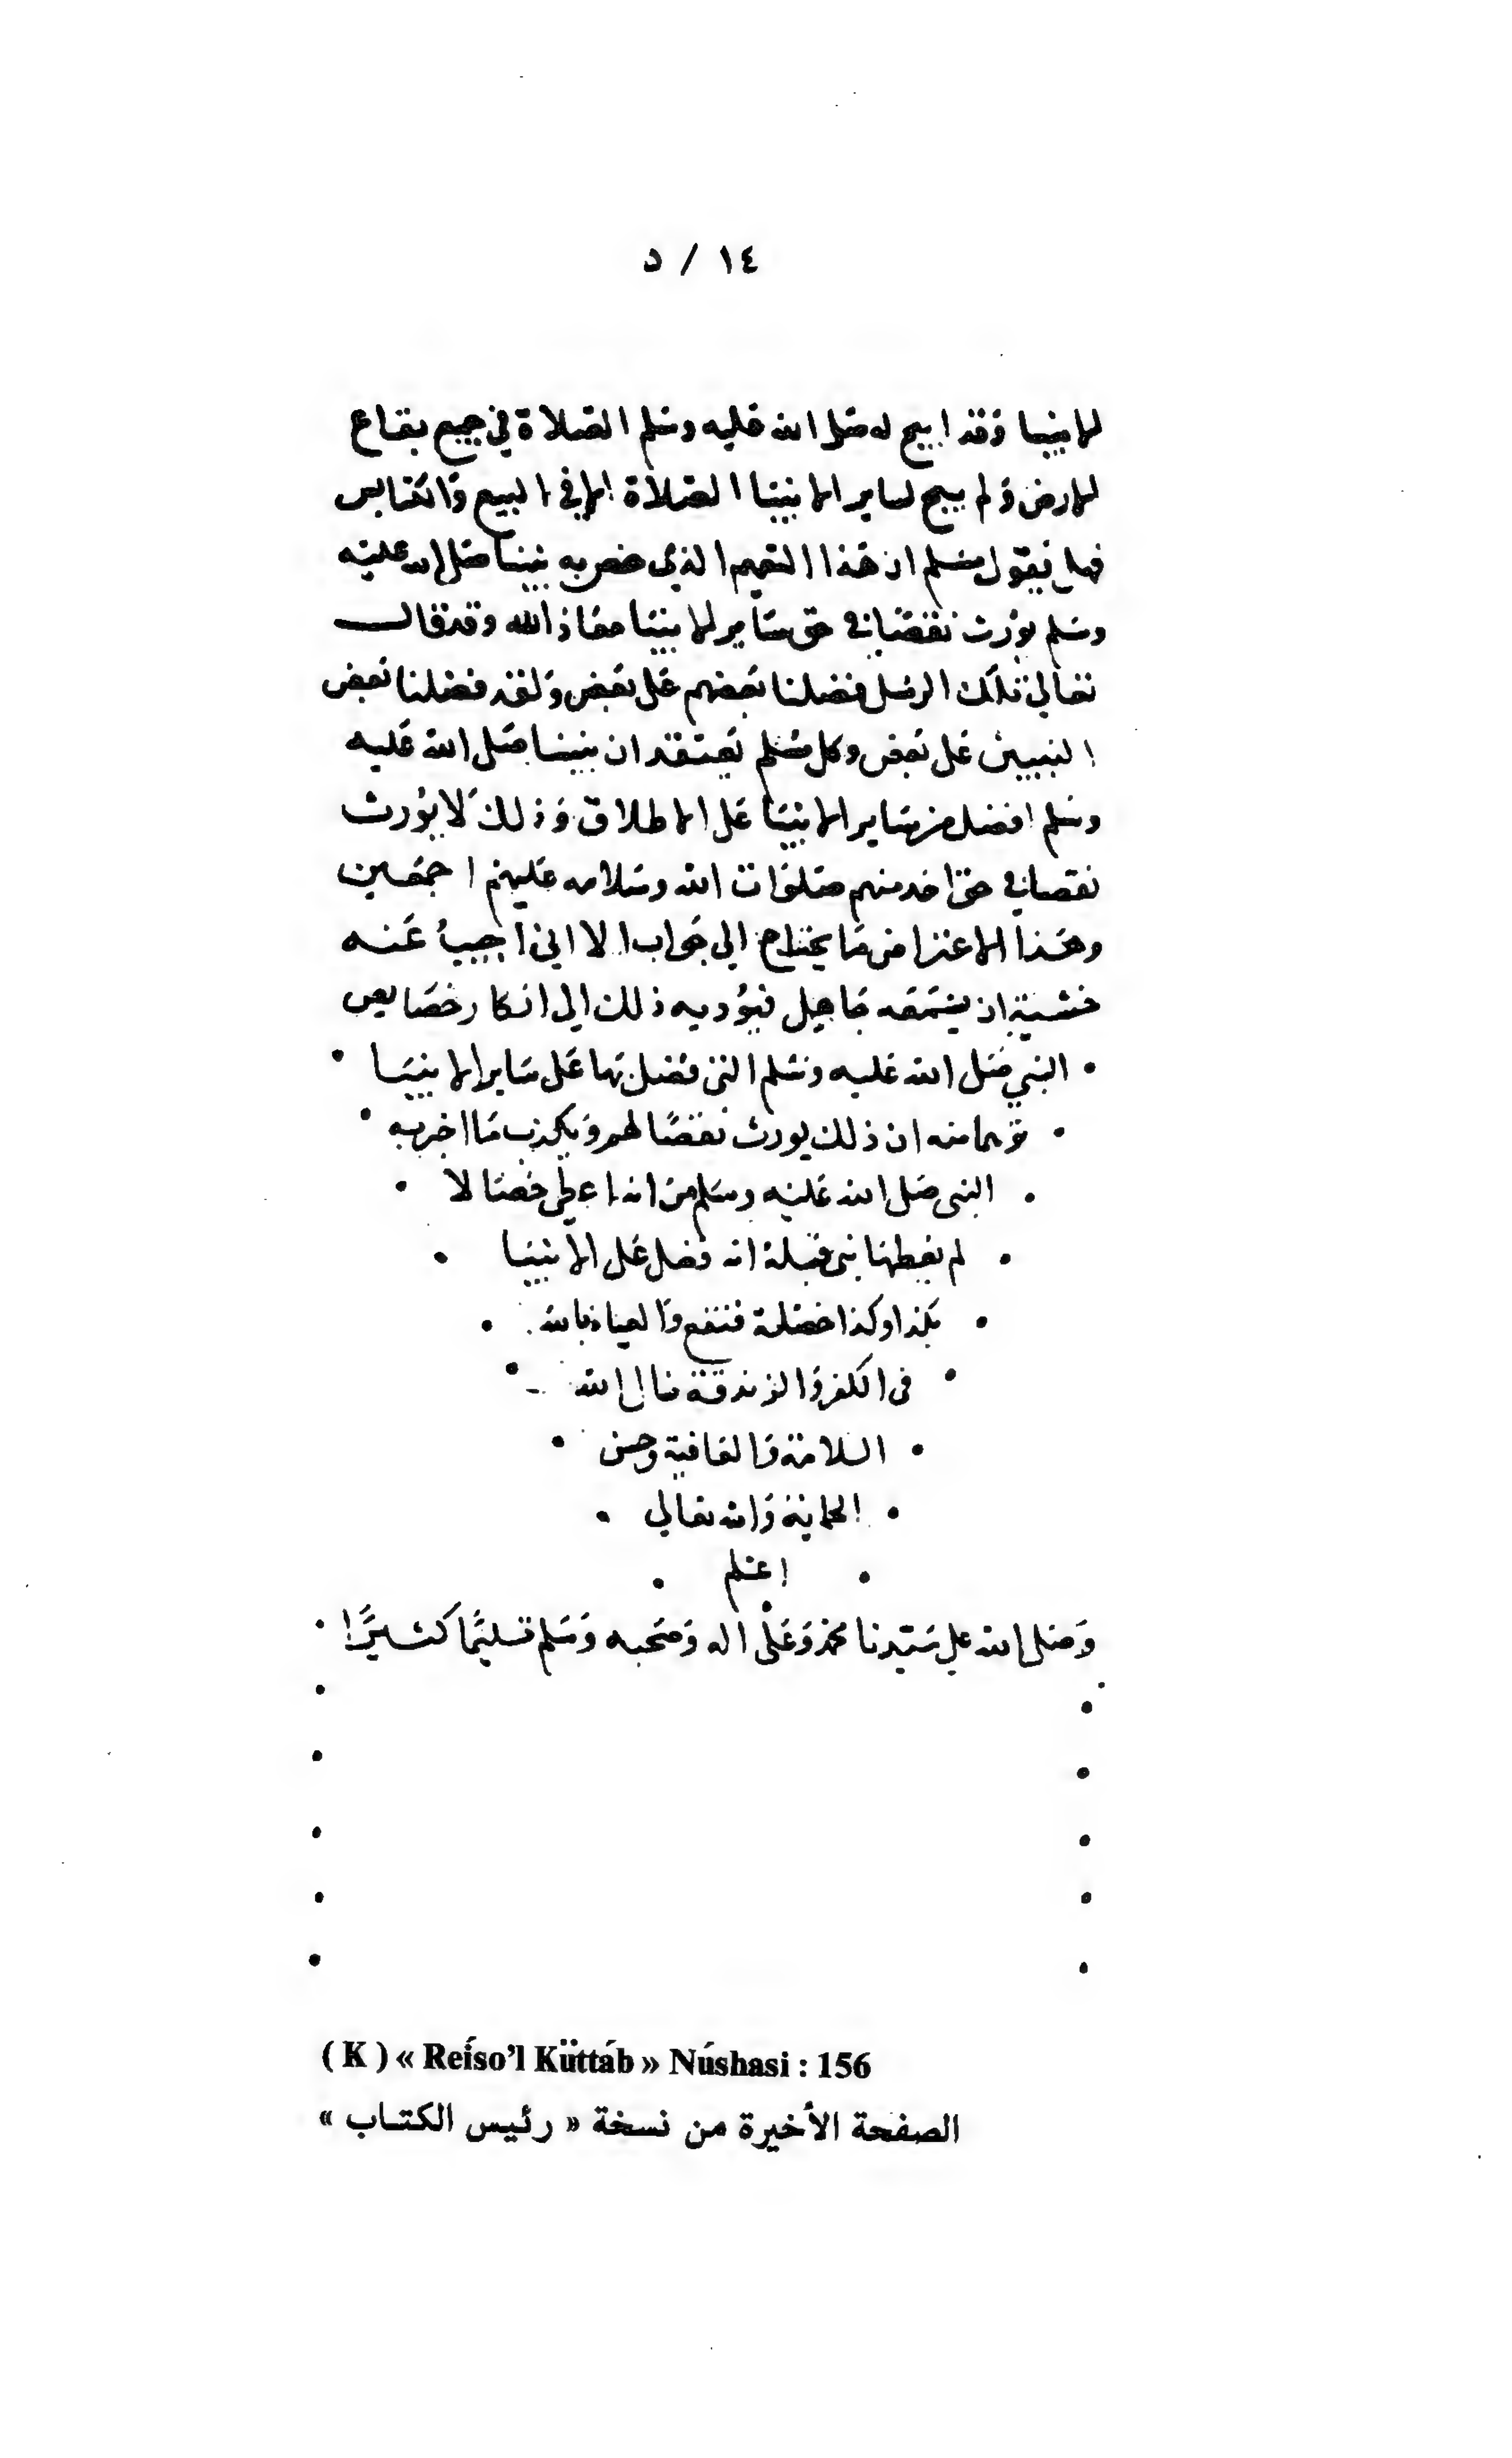 ١٤ / د
الانبيا وقد ابيح له صلى الله عليه وسلم الصلاة في جميع بقاع
الارض ولم يبح لساير الانبيا الصلاة الا في البيع والكنايس
فهل يقول مسلم ان هذا التعميم الذي خص به نبينا صلى الله عليه
وسلم يورث نقصا في حق ساير الانبيا معاذ الله وقد قال
تعالى تلك الرسل فضلنا بعضهم على بعض ولقد فضلنا بعض
النبيين على بعض وكل مسلم يعتقد ان نبينا صلى الله عليه
وسلم افضل من ساير الانبيا على الاطلاق وذلك لا يورث
نقصا في حق احد منهم صلوات الله وسلامه عليهم اجمعين
وهذا الاعتراض ما يحتاج الي جواب الا اني اجيب عنه
خشية ان يسمعه جاهل فيوديه ذلك الي انكار خصايص
• النبي صلى الله عليه وسلم التي فضل بها على ساير الانبيا •
• توهما منه ان ذلك يورث نقصا لهم ويكذب ما اخبر به •
• النبي صلى الله عليه وسلم من انه اعطي خصالا •
• لم يعطها نبي قبله انه فضل على الانبيا •
• بكذا وكذا خصلة فيقع والعياذ بالله •
• في الكفر والزندقة نسال الله •
• السلامة والعافية وحسن •
• الخاتمة والله تعالي •
• اعلم •
وَصلى الله علي سَيّدنا محمد وَعَلى اله وَصَحبه وَسَلم تسليمًا كثيرًا •
( K ) « Reíso’l Küttáb » Núshasi : 156
الصفحة الأخيرة من نسخة « رئيس الكتاب »